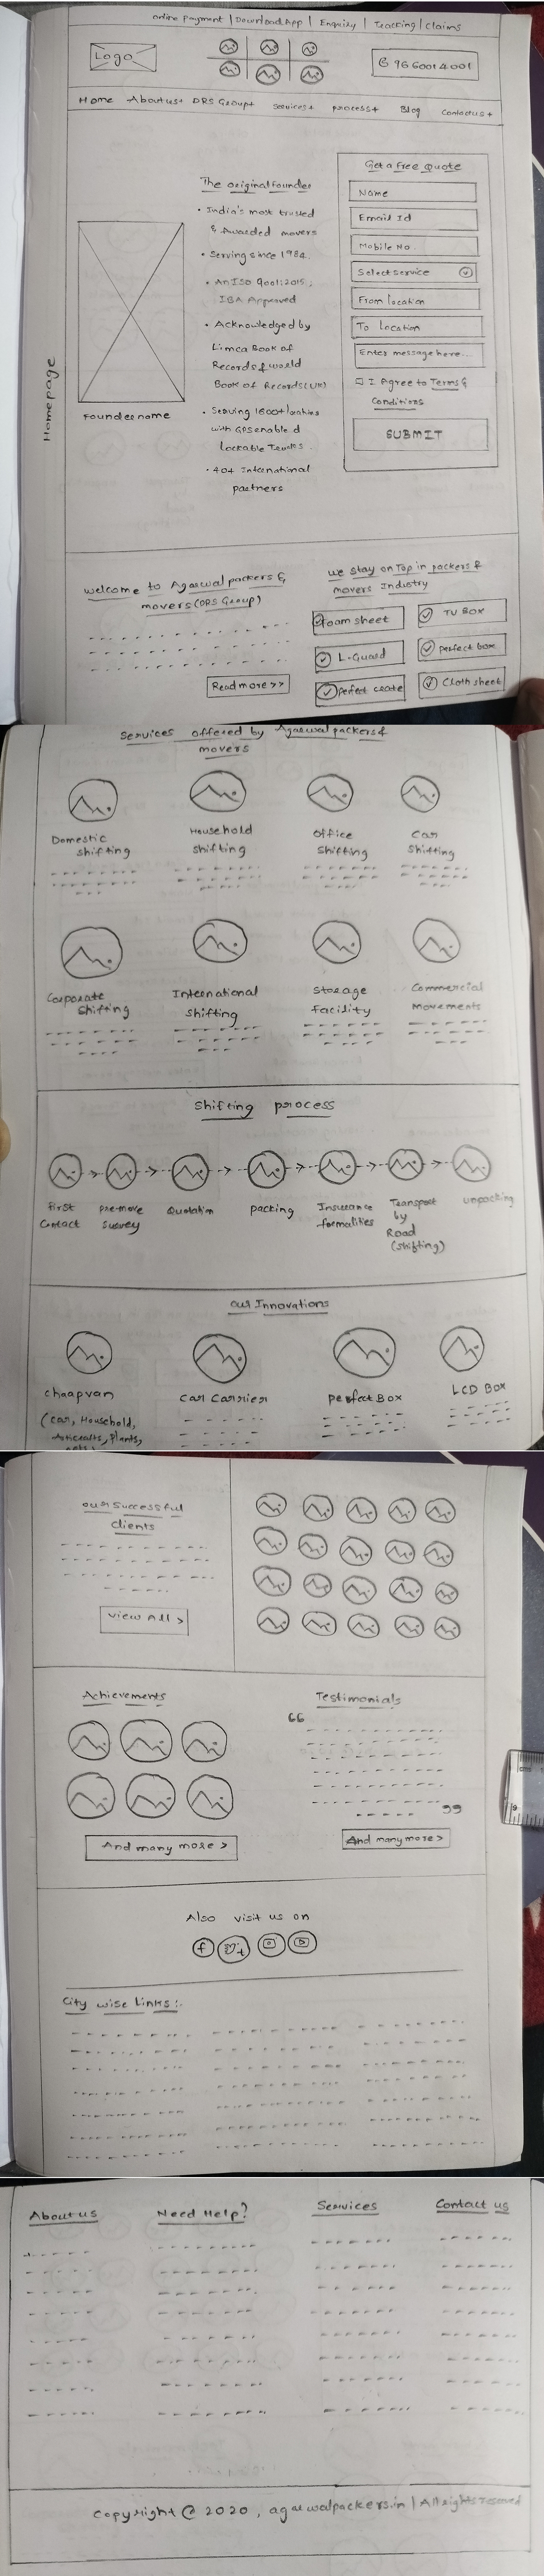 Online Payment | Download App | Enquiry | Tracking | Claims
Logo
96 6001 4 001
Home About us+ DRS Group+ Services+ process+ Blog Contact us+
Homepage
Founder name
The original Founder
• India's most trusted
& Awarded movers
• Serving since 1984.
• An ISO 9001:2015;
IBA Approved
• Acknowledged by
Limca Book of
Records & world
Book of Records (UK)
• Serving 1600+ locations
with GPS enabled
Lockable Trucks.
• 40+ International
partners
Get a Free Quote
Name
Email Id
Mobile No.
Select service
From location
To Location
Enter message here...
I Agree to Terms &
Conditions
SUBMIT
welcome to Agarwal packers &
movers (DRS Group)
Read more >>
we stay on Top in packers &
movers Industry
Foam sheet
TV BOX
L-Guard
perfect box
perfect crate
Cloth sheet
Services offered by Agarwal packers &
movers
Domestic
Shifting
Household
Shifting
Office
Shifting
Car
Shifting
Corporate
Shifting
International
Shifting
Storage
Facility
Commercial
Movements
Shifting process
First
Contact
pre-move
Survey
Quotation
packing
Insurance
formalities
Transport
by
Road
(shifting)
unpacking
our Innovations
Chaapvan
(car, Household,
Anticrafts, plants,
pets)
Car Carrier
Perfect Box
LCD BOX
our Successful
Clients
View All >
Achievements
And many more >
Testimonials
“
”
And many more >
Also visit us on
City wise Links:-
About us
Need Help?
Services
Contact us
Copyright @ 2020, agarwalpackers.in | All rights reserved